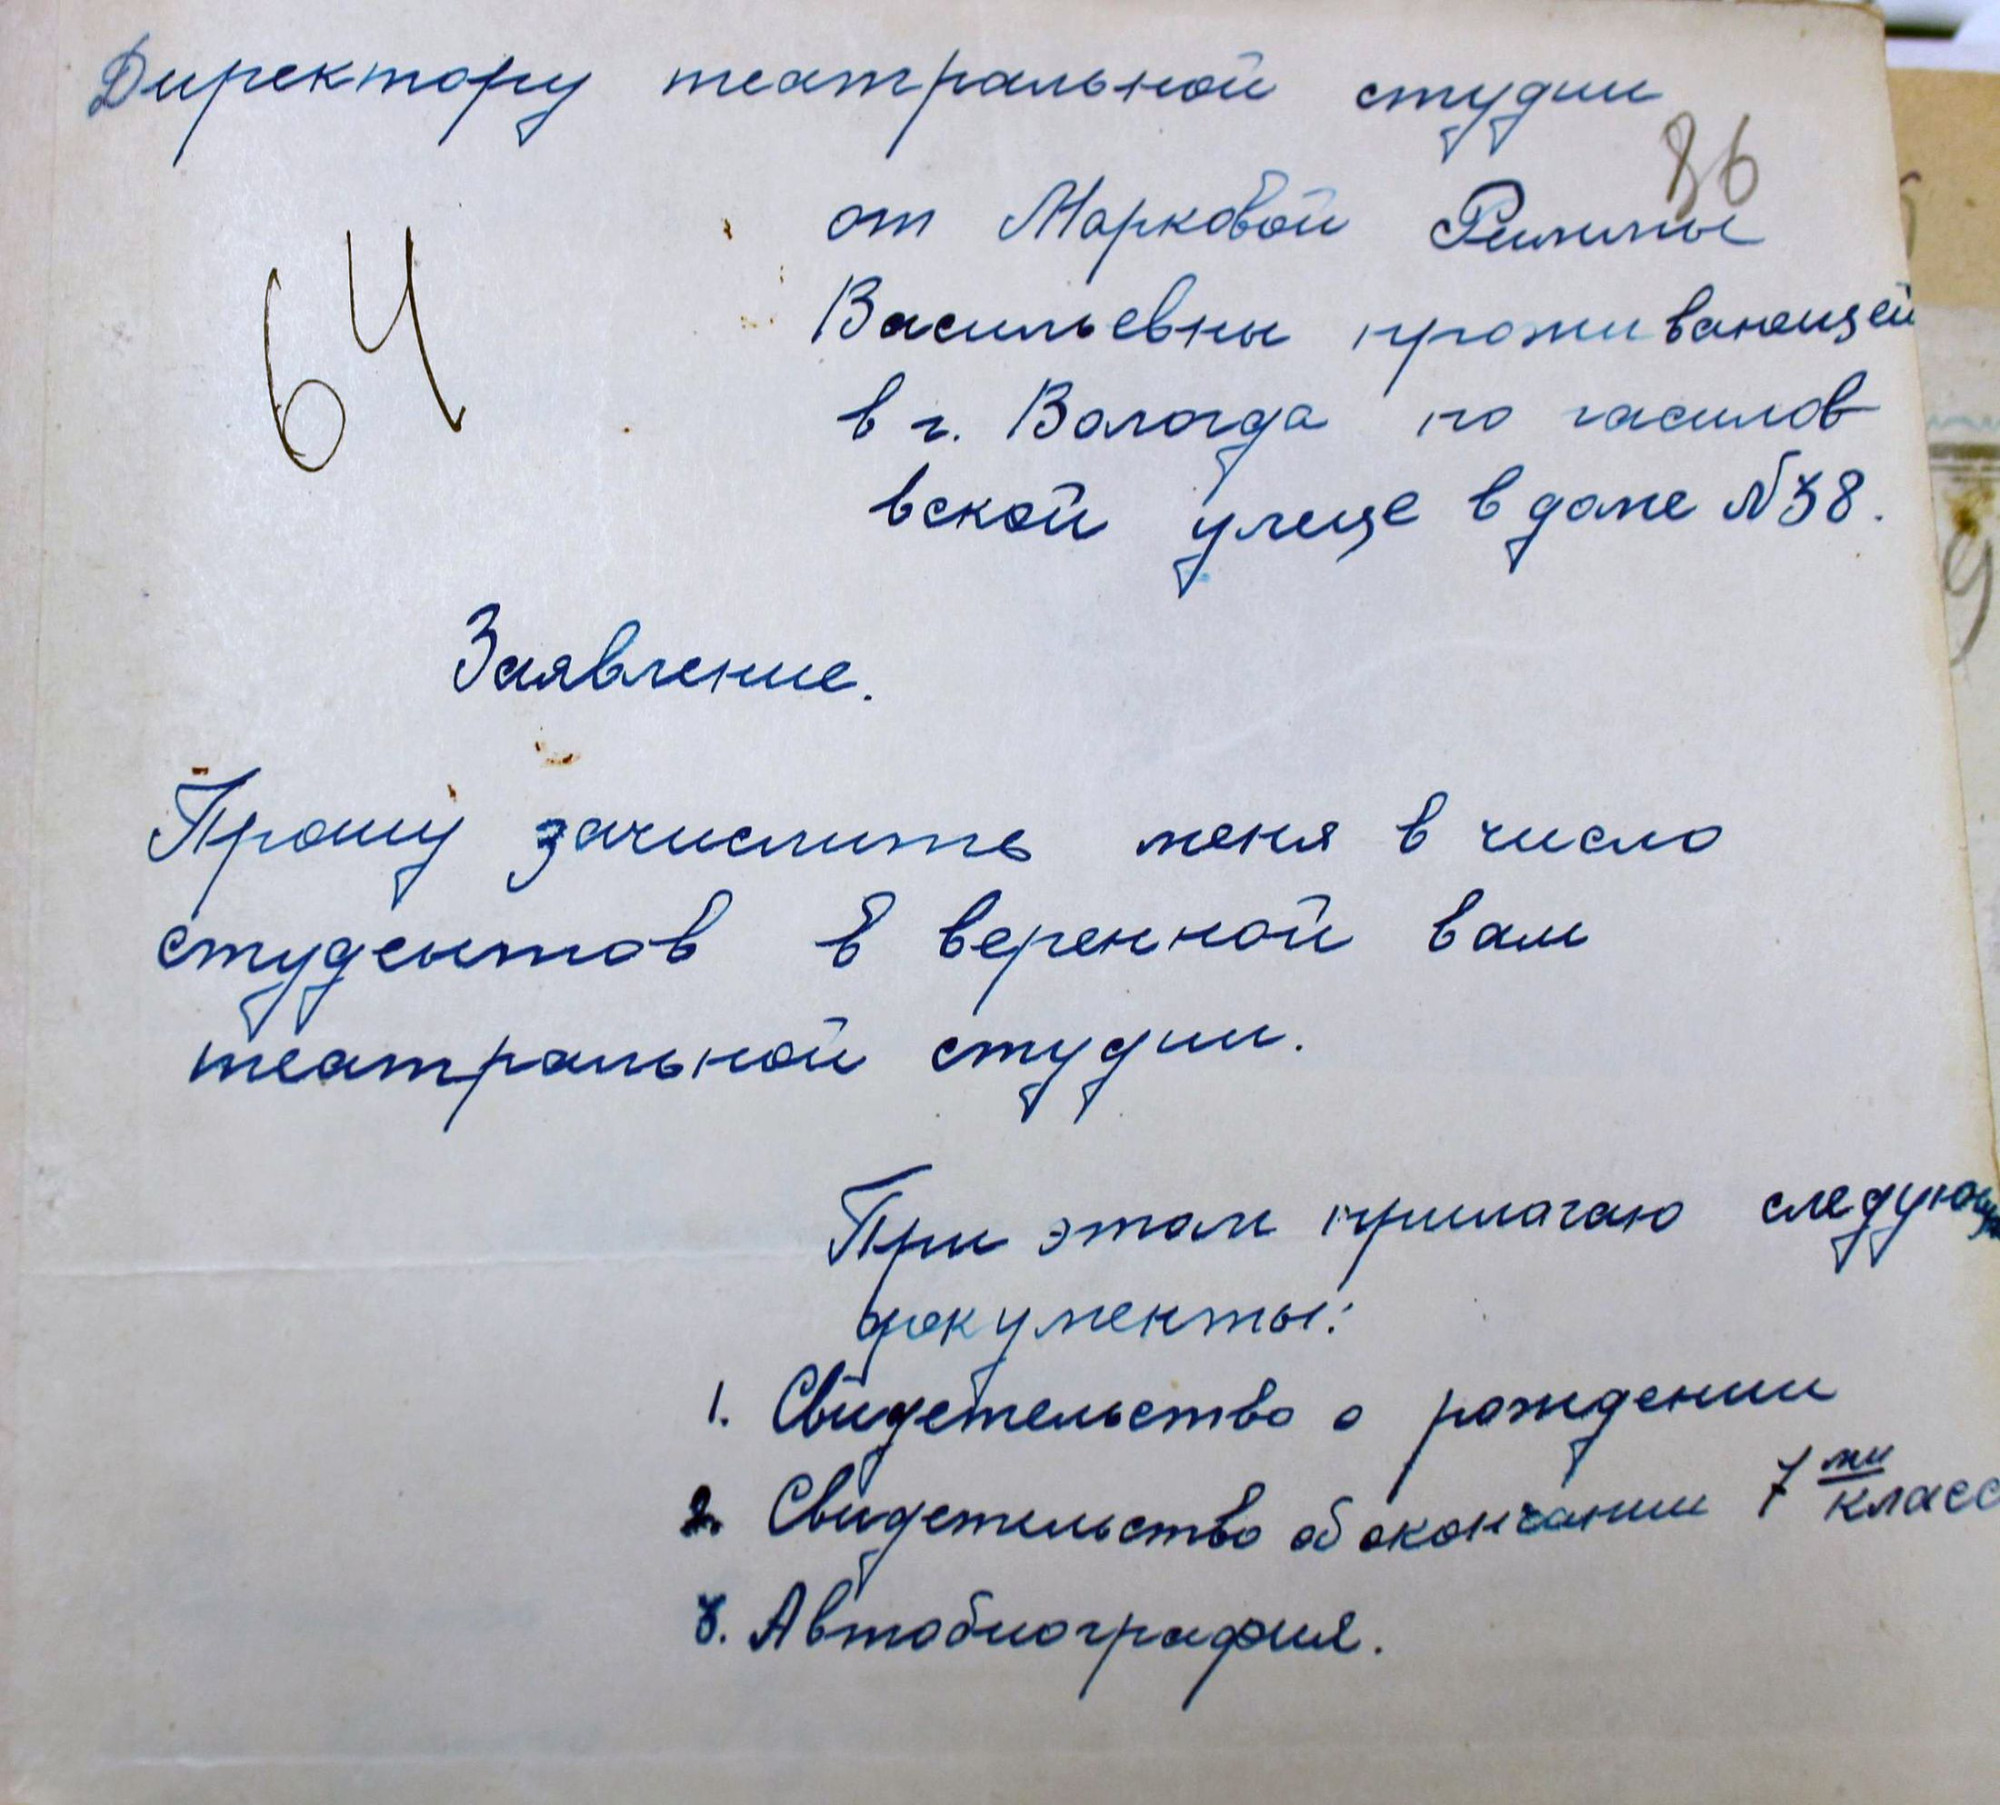 Директору театральной студии
86
от Марковой Риммы
64
Васильевны проживающей
в г. Вологда по гасилов
вской улице в доме №38.
Заявление.
Прошу зачислить меня в число
студентов в веренной вам
театральной студии.
При этом прилагаю следующие
документы:
1. Свидетельство о рождении
2. Свидетельство об окончании 7ми класс
3. Автобиография.